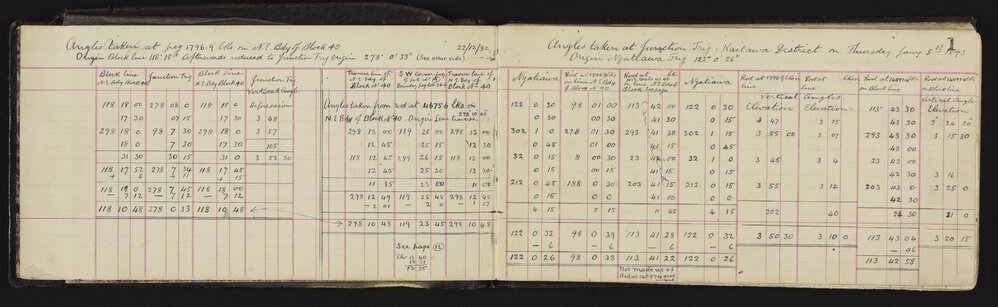 Angles taken at peg 1796.9 lks on N.E Bdy of Block 40 22/12/92
Origin Block line 118° 18' Afterwards reduced to Junction Trig Origin 278° 0' 33" (See other side)
Block line N.E Bdy Block 40 Junction Trig Block Line N.E Bdy Block 40 Junction Trig
Vertical Angle
Depression
118 18 00 278 08 0 118 18 0
17 30 07 15 17 30 3 48
298 18 0 98 7 30 298 18 0 3 57
18 0 7 30 17 30 105
31 30 30 15 31 0 3 52 30
118 17 52 278 7 34 118 17 45
+ 8 + 11 + 15
118 18 0 278 7 45 118 18 00
- 7 12 - 7 12 - 7 12
118 10 48 278 0 33 118 10 48
Traverse line of N.E Bdy of Block No 40 S.W Corner peg Traverse line of N.E Bdy of Block No 40
Angles taken from rod at 4675.6 lks on
N.E Bdy of Block No 40. Origin Line traverse 298 10 48
298 13 00 119 26 00 298 13 00
12 45 25 15 12 30
118 12 45 299 26 15 118 13 00
12 45 25 30 12 30
11 15 23 00 11 00
298 12 49 119 25 45 298 12 45
- 2 01 - 2 0 - 1 57
298 10 48 119 23 45 298 10 48
See page 12
Angles taken at Junction Trig: Kaitawa District on Thursday Jany 5th 1893
Origin Ngatiawa Trig 122° 0' 26"
1
Ngatiawa Rod at 1796.9 lks on line N.E Bdy of Block No 40 Ngatiawa
Vertical Angles
Elevation Elevation
Vertical Angle
Elevation
122 0 30 98 01 00 113 42 00 122 0 30 113° 43 30
0 30 00 30 41 30 0 15 3 47 3 15 43 30 3° 24 20
302 1 0 278 01 30 293 41 30 302 1 15 3 55 00 3 07 293 43 30 3 15 30
0 45 01 00 41 15 0 45 43 00
32 0 15 8 00 30 23 42 00 32 1 0 3 45 3 4 23 43 00
0 15 00 15 41 15 0 15 42 30 3 16
212 0 45 188 0 30 203 41 15 212 0 45 3 55 3 14 203 43 0 3 25 0
0 15 0 15 41 00 0 15 42 30
4 15 5 15 11 45 4 15 202 40 24 30 81 0
122 0 32 98 0 39 113 41 28 122 0 32 3 50 30 3 10 0 113 43 04 3 20 15
- 6 - 6 - 6 - 6 - 06
122 0 26 98 0 33 113 41 22 122 0 26 113 42 58
Not made use of